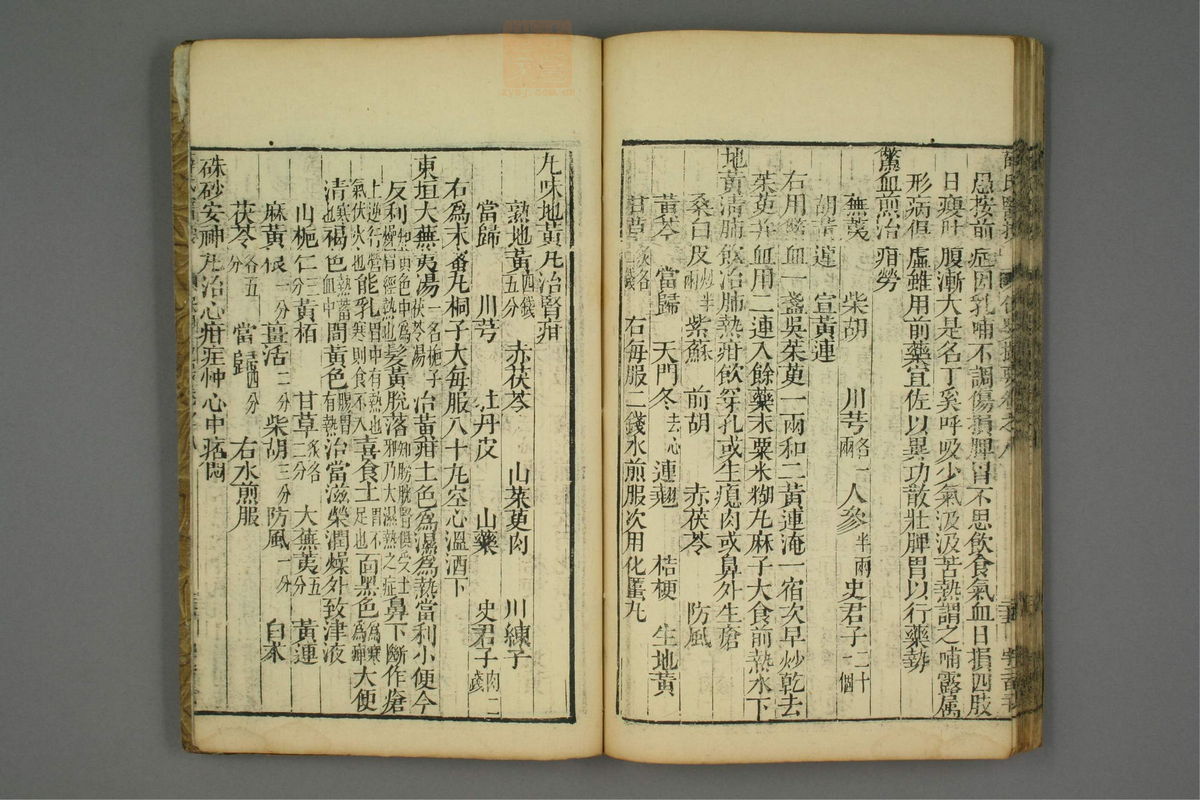 愚按前症因乳哺不調傷損脾胃不思飲食氣血日損四肢
日瘦肚腹漸大是名丁奚呼吸少氣汲汲苦熱謂之哺露屬
形病俱虛雖用前藥宜佐以異功散壯脾胃以行藥勢
鱉血煎治疳勞
蕪荑 柴胡 川芎各一兩 人參半兩 史君子二十一個
胡黃連 宣黃連
右用鱉血一盞吳茱萸一兩和二黃連淹一宿次早炒乾去
茱萸并血用二連入餘藥末粟米糊丸麻子大食前熱水下
地黃清肺飲治肺熱疳飲穿孔或生瘜肉或鼻外生瘡
桑白皮炒半兩 紫蘇 前胡 赤茯苓 防風
黃芩 當歸 天門冬去心 連翹 桔梗 生地黃
甘草炙各二錢 右每服二錢水煎服次用化䘌丸
九味地黃丸治腎疳
熟地黃四錢五分 赤茯苓 山茱萸肉 川練子
當歸 川芎 牡丹皮 山藥 史君子肉二錢
右為末蜜丸桐子大每服八十丸空心溫酒下
東垣大蕪荑湯一名梔子茯苓湯 治黃疳土色為濕為熱當利小便今
反利知黃色中為燥胃經熱也髮黃脫落知膀胱腎俱受土邪乃大濕熱之症鼻下斷作瘡
上逆行營氣伏火也能乳胃中有熱也寒則食不入喜食土胃不足也面黑色為寒為痹大便
清寒褐色熱蓄血中間黃色腸胃有熱治當滋榮潤燥外致津液
山梔仁三分 黃栢 甘草炙各二分 大蕪荑五分 黃連
麻黃根一分 薑活二分 柴胡三分 防風一分 白朮
茯苓各五分 當歸四分 右水煎服
硃砂安神丸治心疳怔忡心中痞悶